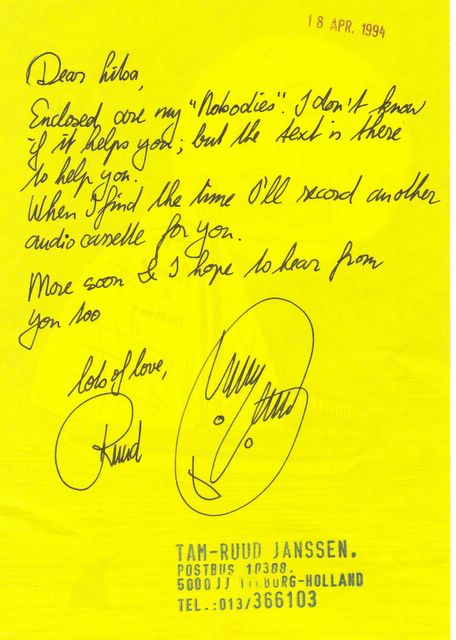 18 APR. 1994
Dear Litsa,
Enclosed are my "Nobodies". I don't know
if it helps you; but the text is there
to help you.
When I find the time I'll record another
audio cassette for you.
More soon & I hope to hear from
you too
lots of love,
Ruud
TAM-RUUD JANSSEN.
POSTBUS 10388.
5000 JJ TILBURG-HOLLAND
TEL.:013/366103